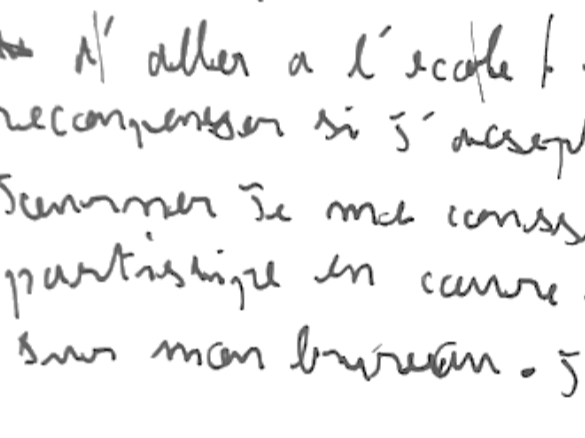 d'aller a l'ecole
recompenser si j'acsept
Je me conss
partisiipe en cour
sur mon bureau. j